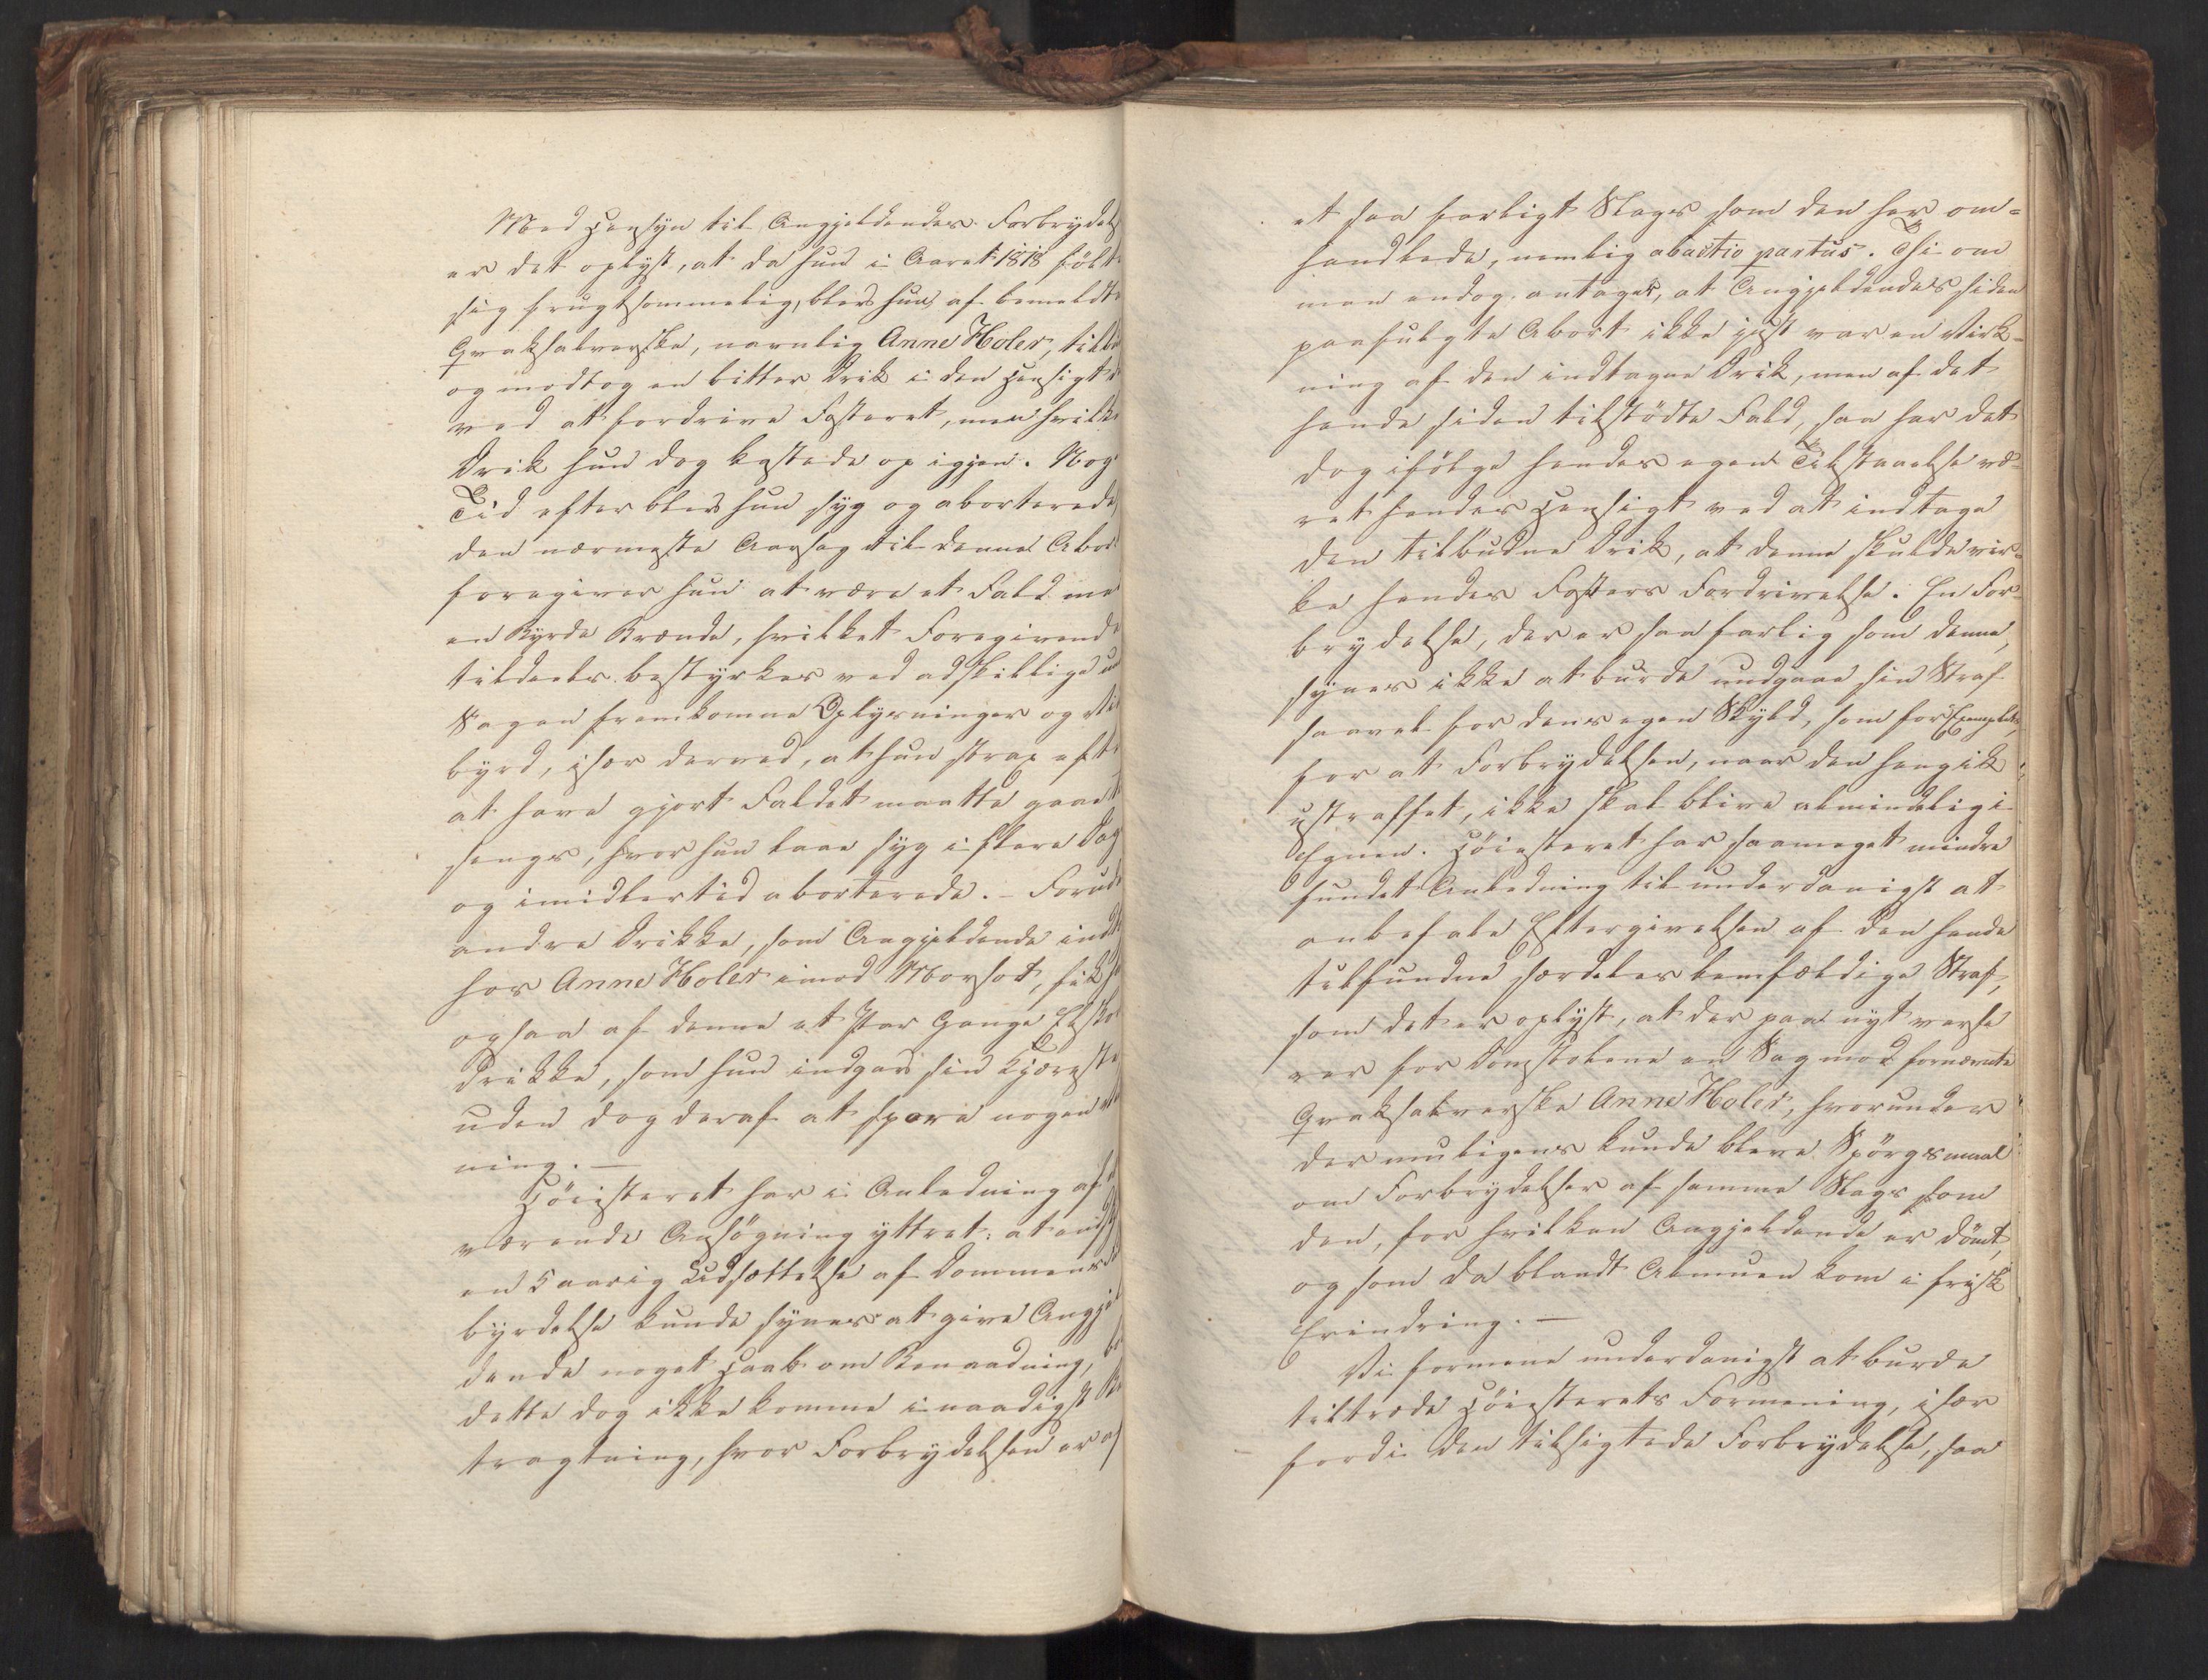 Med Hensyn til Angjeldendes Forbrydels
er det oplyst, at da hun i Aaret 1818 følte
sig frugtsommelig, blev hun af bemeldte
Qvaksalverske, navnlig Anne Holer, tilbu
og modtog en bitter Drik i den Hensigt d
ved at fordrive Fosteret, men hvilke
Drik hun dog kastede op igjen. Nog
Tid efter blev hun syg og aborterede,
den nærmeste Aarsag til denne Abor
foregiver hun at være et Fald med
en Byrde Brænde, hvilket Foregivende
tildeels bestyrkes ved adskillige un
Sagen fremkomne Oplysninger og Vid
byrd, især derved, at hun strax efte
at have gjort Faldet maatte gaae t
sengs, hvor hun laae syg i flere Dag
og imidlertid aborterede. – Forude
andre Drikke, som Angjeldende indt
hos Anne Holer imod Morsot, fik h
ogsaa af denne et Par Gange Elskov
drikke, som hun indgav sin Kjæreste
uden dog deraf at spore nogen
ning. —
Høiesteret har i Anledning af
værende Ansøgning yttret: at end
en 5 aarig Udsættelse af Dommens
byrdelse kunde synes at give Angjel
dende noget Haab om Benaadning, bø
dette dog ikke komme i naadigst Be
tragtning, hvor Forbrydelsen er af
et saa farligt Slags som den her om=
handlede, nemlig abactio partus. Thi om
man endog antager, at Angjeldendes siden
paafulgte Abort ikke just var en Virk-
ning af den indtagne Drik, men af det
hende siden tilstødte Fald, saa har det
dog ifølge hendes egen Tilstaaelse væ-
ret hendes Hensigt ved at indtage
den tilbudne Drik, at denne skulde vir-
ke hendes Fosters Fordrivelse. En For-
brydelse, der er saa farlig som denne,
synes ikke at burde undgaae sin Straf
saavel for dens egen Skyld, som for Exemplets,
for at Forbrydelsen, naar den hengik
ustraffet, ikke skal blive almindelig i
Egnen. Høiesteret har saameget mindre
fundet Anledning til underdanigst at
anbefale Eftergivelsen af den hende
tilfundne særdeles lemfældige Straf,
som det er oplyst, at der paa nyt verse
rer for Domstolene en Sag mod fornævnte
Qvaksalverske Anne Holer, hvorunder
der muligens kunde blive Spörgsmaal
om Forbrydelser af samme Slags som
den, for hvilken Angjeldende er dömt,
og som da blandt Almuen kom i frisk
Erindring. —
Vi formene underdanigst at burde
tiltræde Høiesterets Formening, især
fordi den tilsigtede Forbrydelse, saa